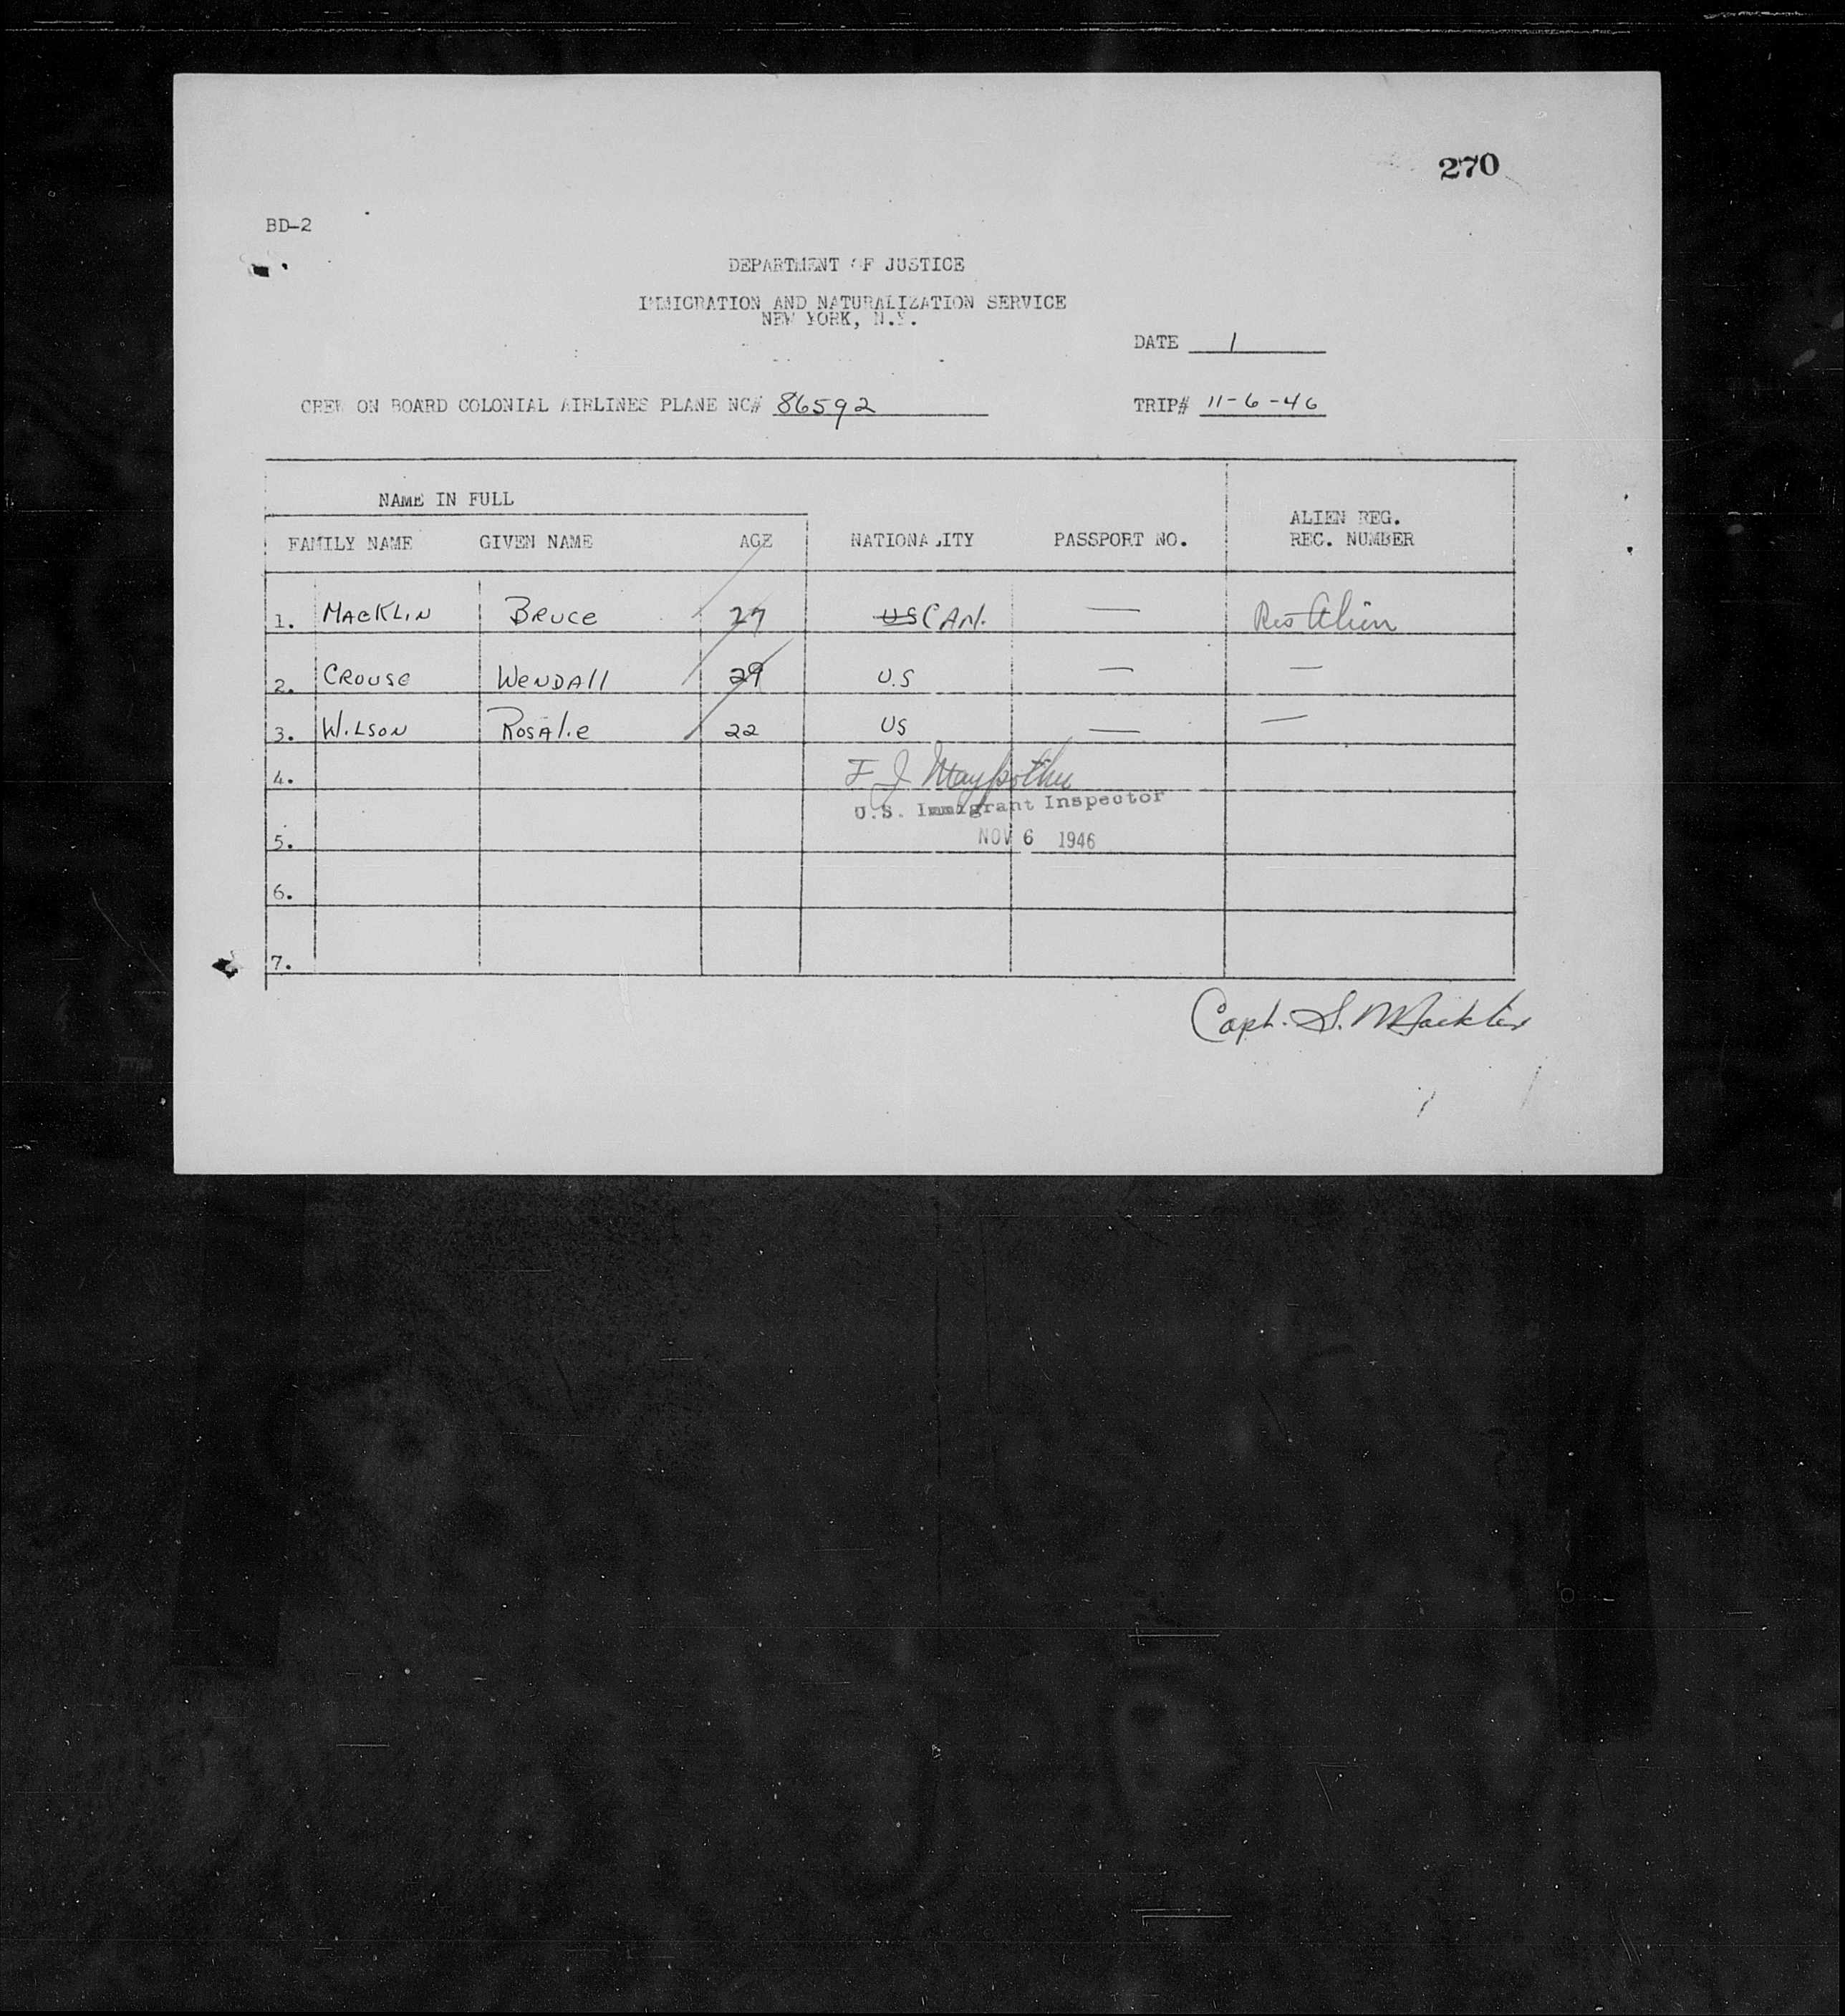 270
BD-2
DEPARTMENT OF JUSTICE
IMMIGRATION AND NATURALIZATION SERVICE
NEW YORK, N.Y.
DATE 1
CREW ON BOARD COLONIAL AIRLINES PLANE NC# 86592 TRIP# 11-6-46
NAME IN FULL
FAMILY NAME GIVEN NAME AGE NATIONALITY PASSPORT NO. ALIEN REG. REC. NUMBER
1. MACKLIN BRUCE 27 US CAN. — Res Alien
2. CROUSE WENDAll 29 U.S — —
3. WILSON ROSAliE 22 US — —
4. F J
U.S. Immigrant Inspector
5. NOV 6 1946
6.
7.
Capt. S. Macklin